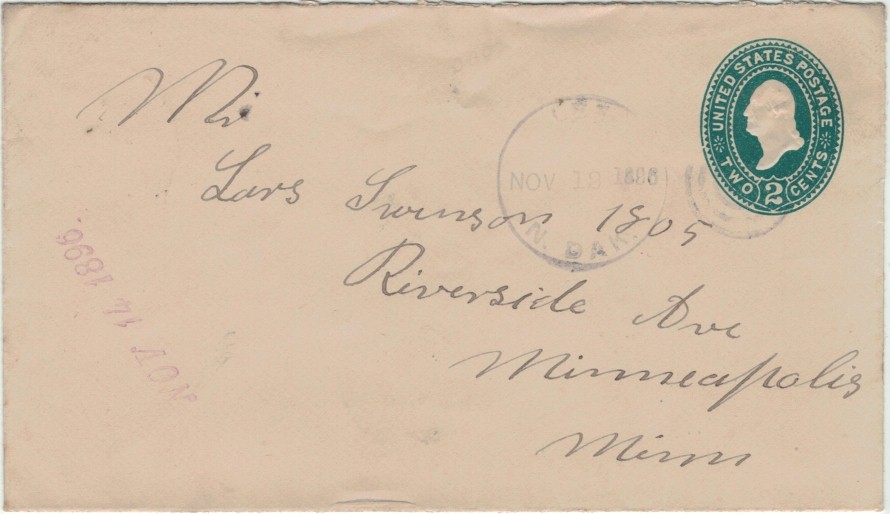 Mr
Lars Swenson 1805
Riverside Ave
Minneapolis
Minn
UNITED STATES POSTAGE
TWO 2 CENTS
NOV 13 1896
N. DAK.
NOV 14 1896